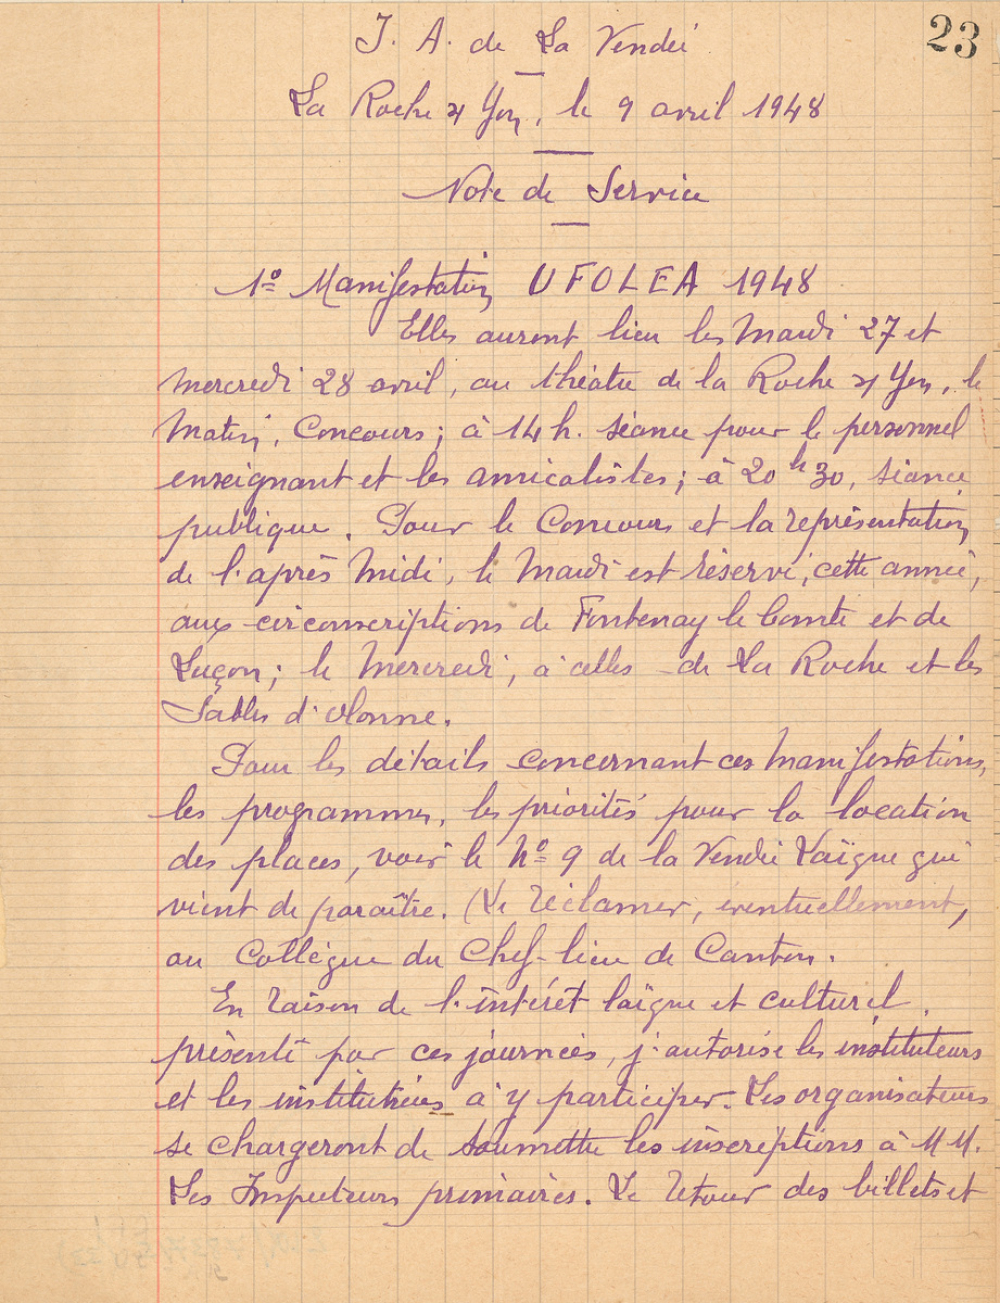 23
I. A. de La Vendée
La Roche s/ Yon, le 9 avril 1948
Note de Service
1º Manifestation UFOLEA 1948
Elles auront lieu les Mardi 27 et
Mercredi 28 avril, au théâtre de la Roche s/ Yon, le
Matin, Concours ; à 14 h. séance pour le personnel
enseignant et les amicalistes ; à 20 h 30, séance
publique. Pour le Concours et la représentation
de l'après Midi, le Mardi est réservé, cette année,
aux circonscriptions de Fontenay le Comte et de
Luçon ; le Mercredi, à celles de La Roche et les
Sables d'Olonne.
Pour les détails concernant ces Manifestations,
les programmes, les priorités pour la location
des places, voir le Nº 9 de la Vendée Laïque qui
vient de paraître. (Le réclamer, éventuellement,
au Collègue du Chef-lieu de Canton.
En raison de l'intérêt laïque et culturel
présenté par ces journées, j'autorise les instituteurs
et les institutrices à y participer. Les organisateurs
se chargeront de soumettre les inscriptions à M M.
Les Inspecteurs primaires. Le retour des billets et